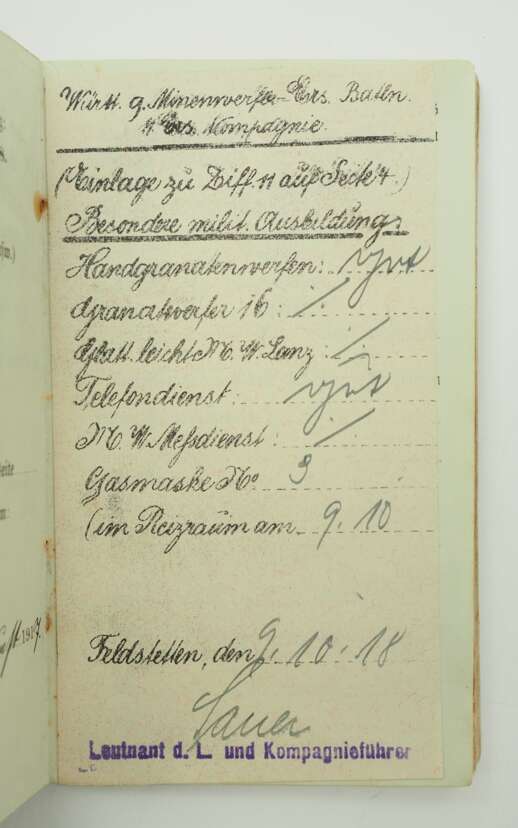 Württ. g. Minenwerfer-Ers. Batln.
Ers. Kompagnie.
(Einlage zu Ziff. 11 auf Seite 4.)
Besondre milit. Ausbildung.
Handgranatenwerfen: gut
Granatwerfer 16: /
Glatt. leicht M. W. Lanz: /
Telefondienst: gut
M. W. Meßdienst: /
Gasmaske No 3
(im Reizraum am 9. 10
Feldstetten, den 9. 10. 18
Sauer
Leutnant d. L. und Kompagnieführer
1917